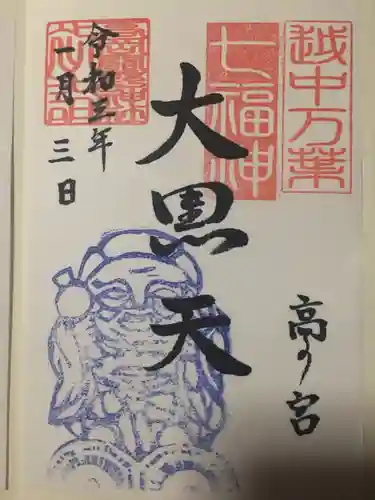 越中万葉
七福神
大黒天
高の宮
令和三年
一月三日